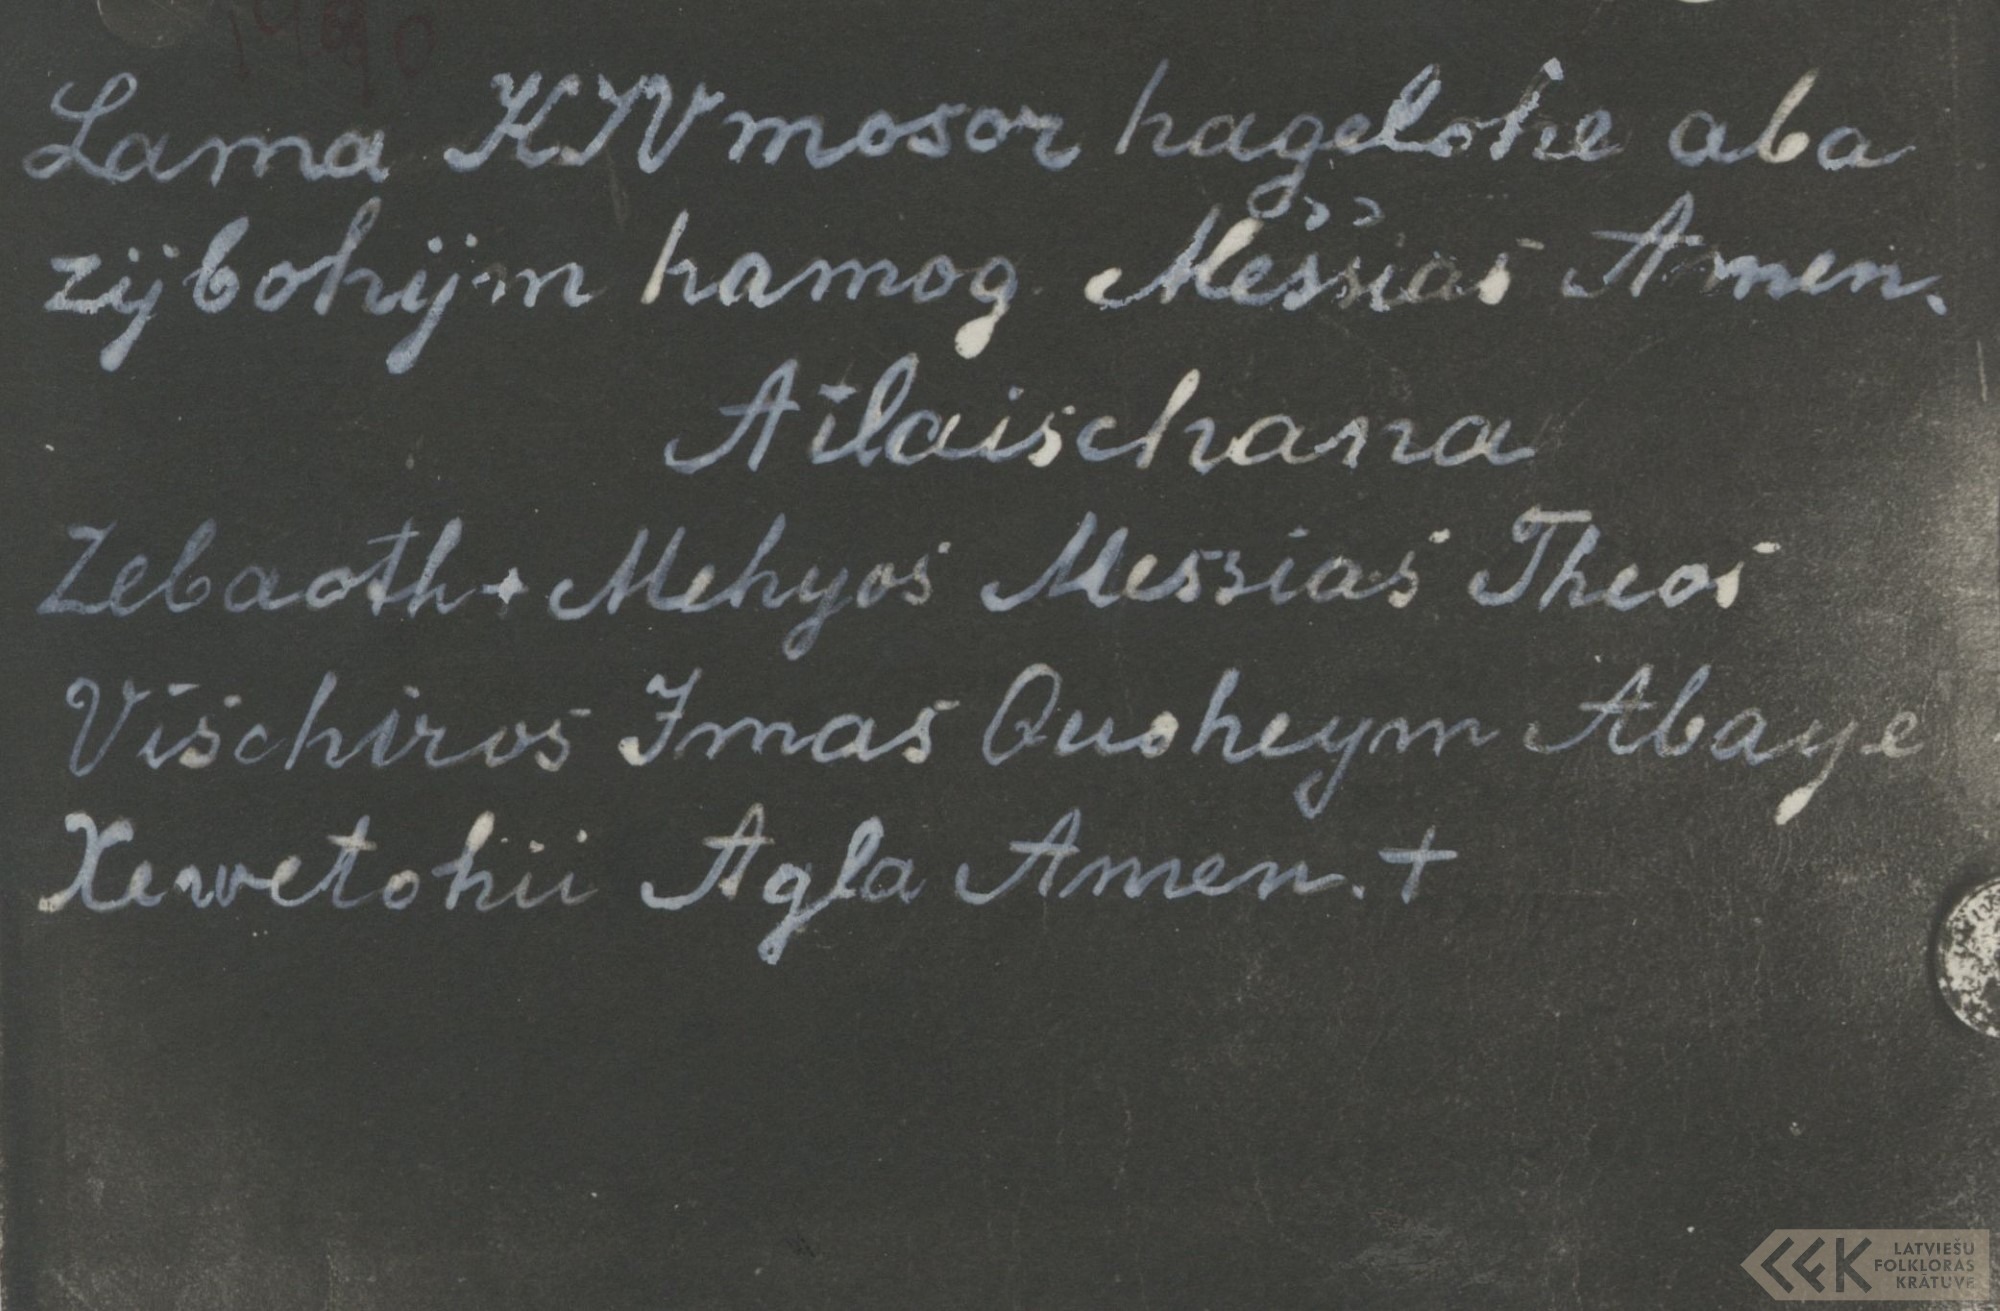 Lama KIV mosor hagelohe aba
zijbohijm hamog Messias Amen.
Ailaischana
Zebaoth + Mehyos Messias Theos
Vischiros Imas Quoheym Abaye
Xewetohii Agla Amen. +
LATVIEŠU
FOLKLORAS
KRĀTUVE